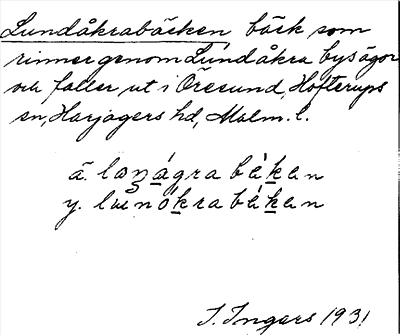 Lundåkrabäcken bäck som
rinner genom Lundåkra bys ägor
och faller ut i Öresund, Hofterups
sn, Harjagers hd, Malm. l.
ä. loṉágra bèken
y. lunókra bèken
I. Ingers 1931